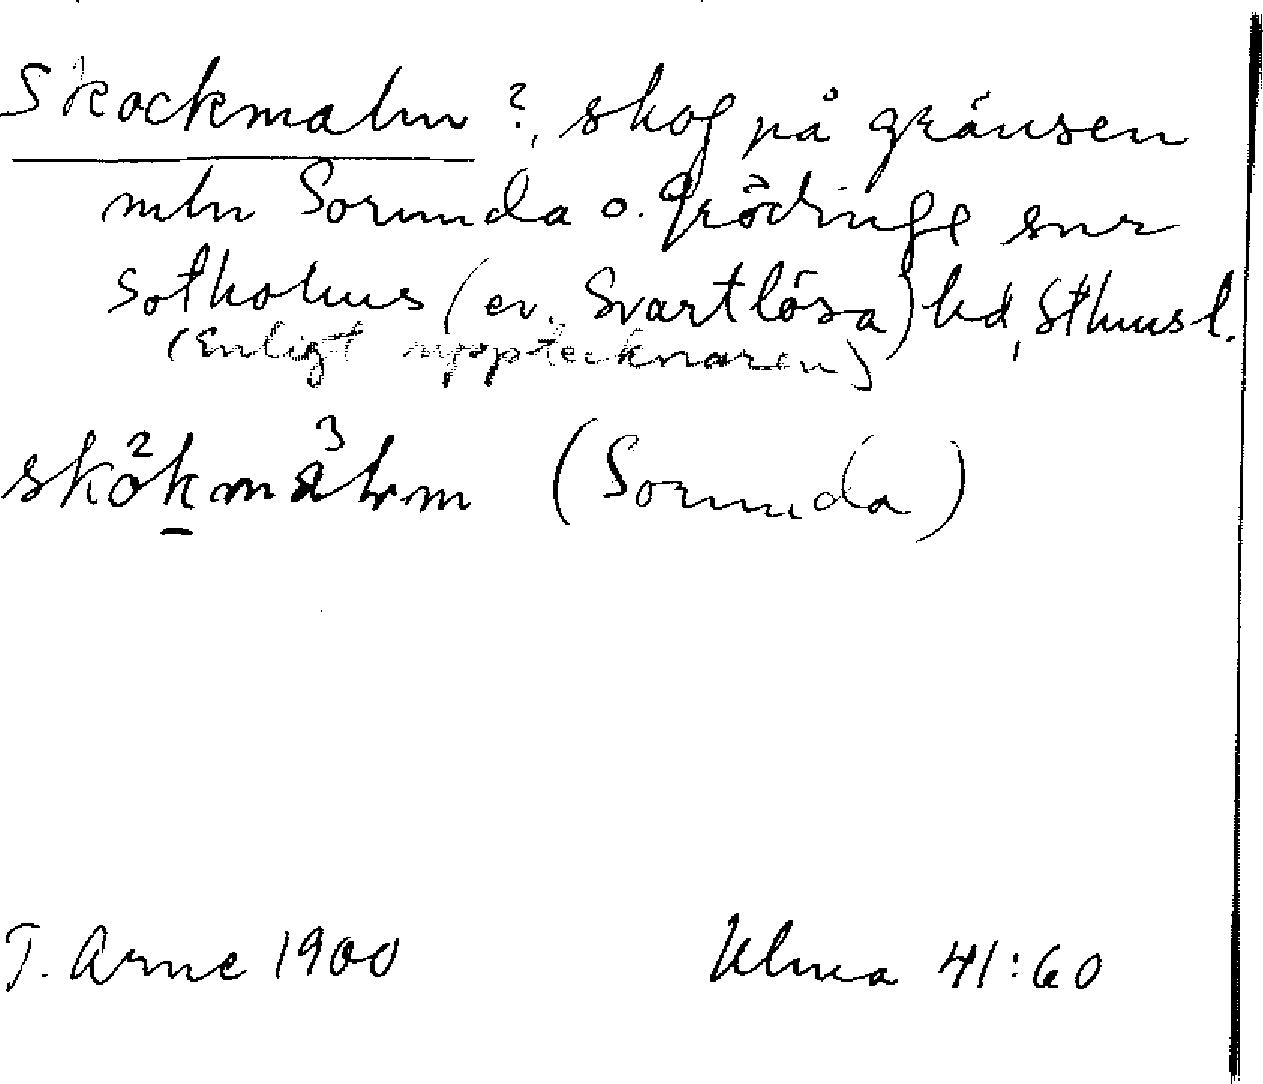 Skockmalm ?, skog på gränsen
mln Sorunda o. Grödinge snr
Sotholms (ev. Svartlösa) hd, Sthmsl.
(Enligt upptecknaren)
skåkmåhm (Sorunda)
T. Arne 1900 Ulma 41:60